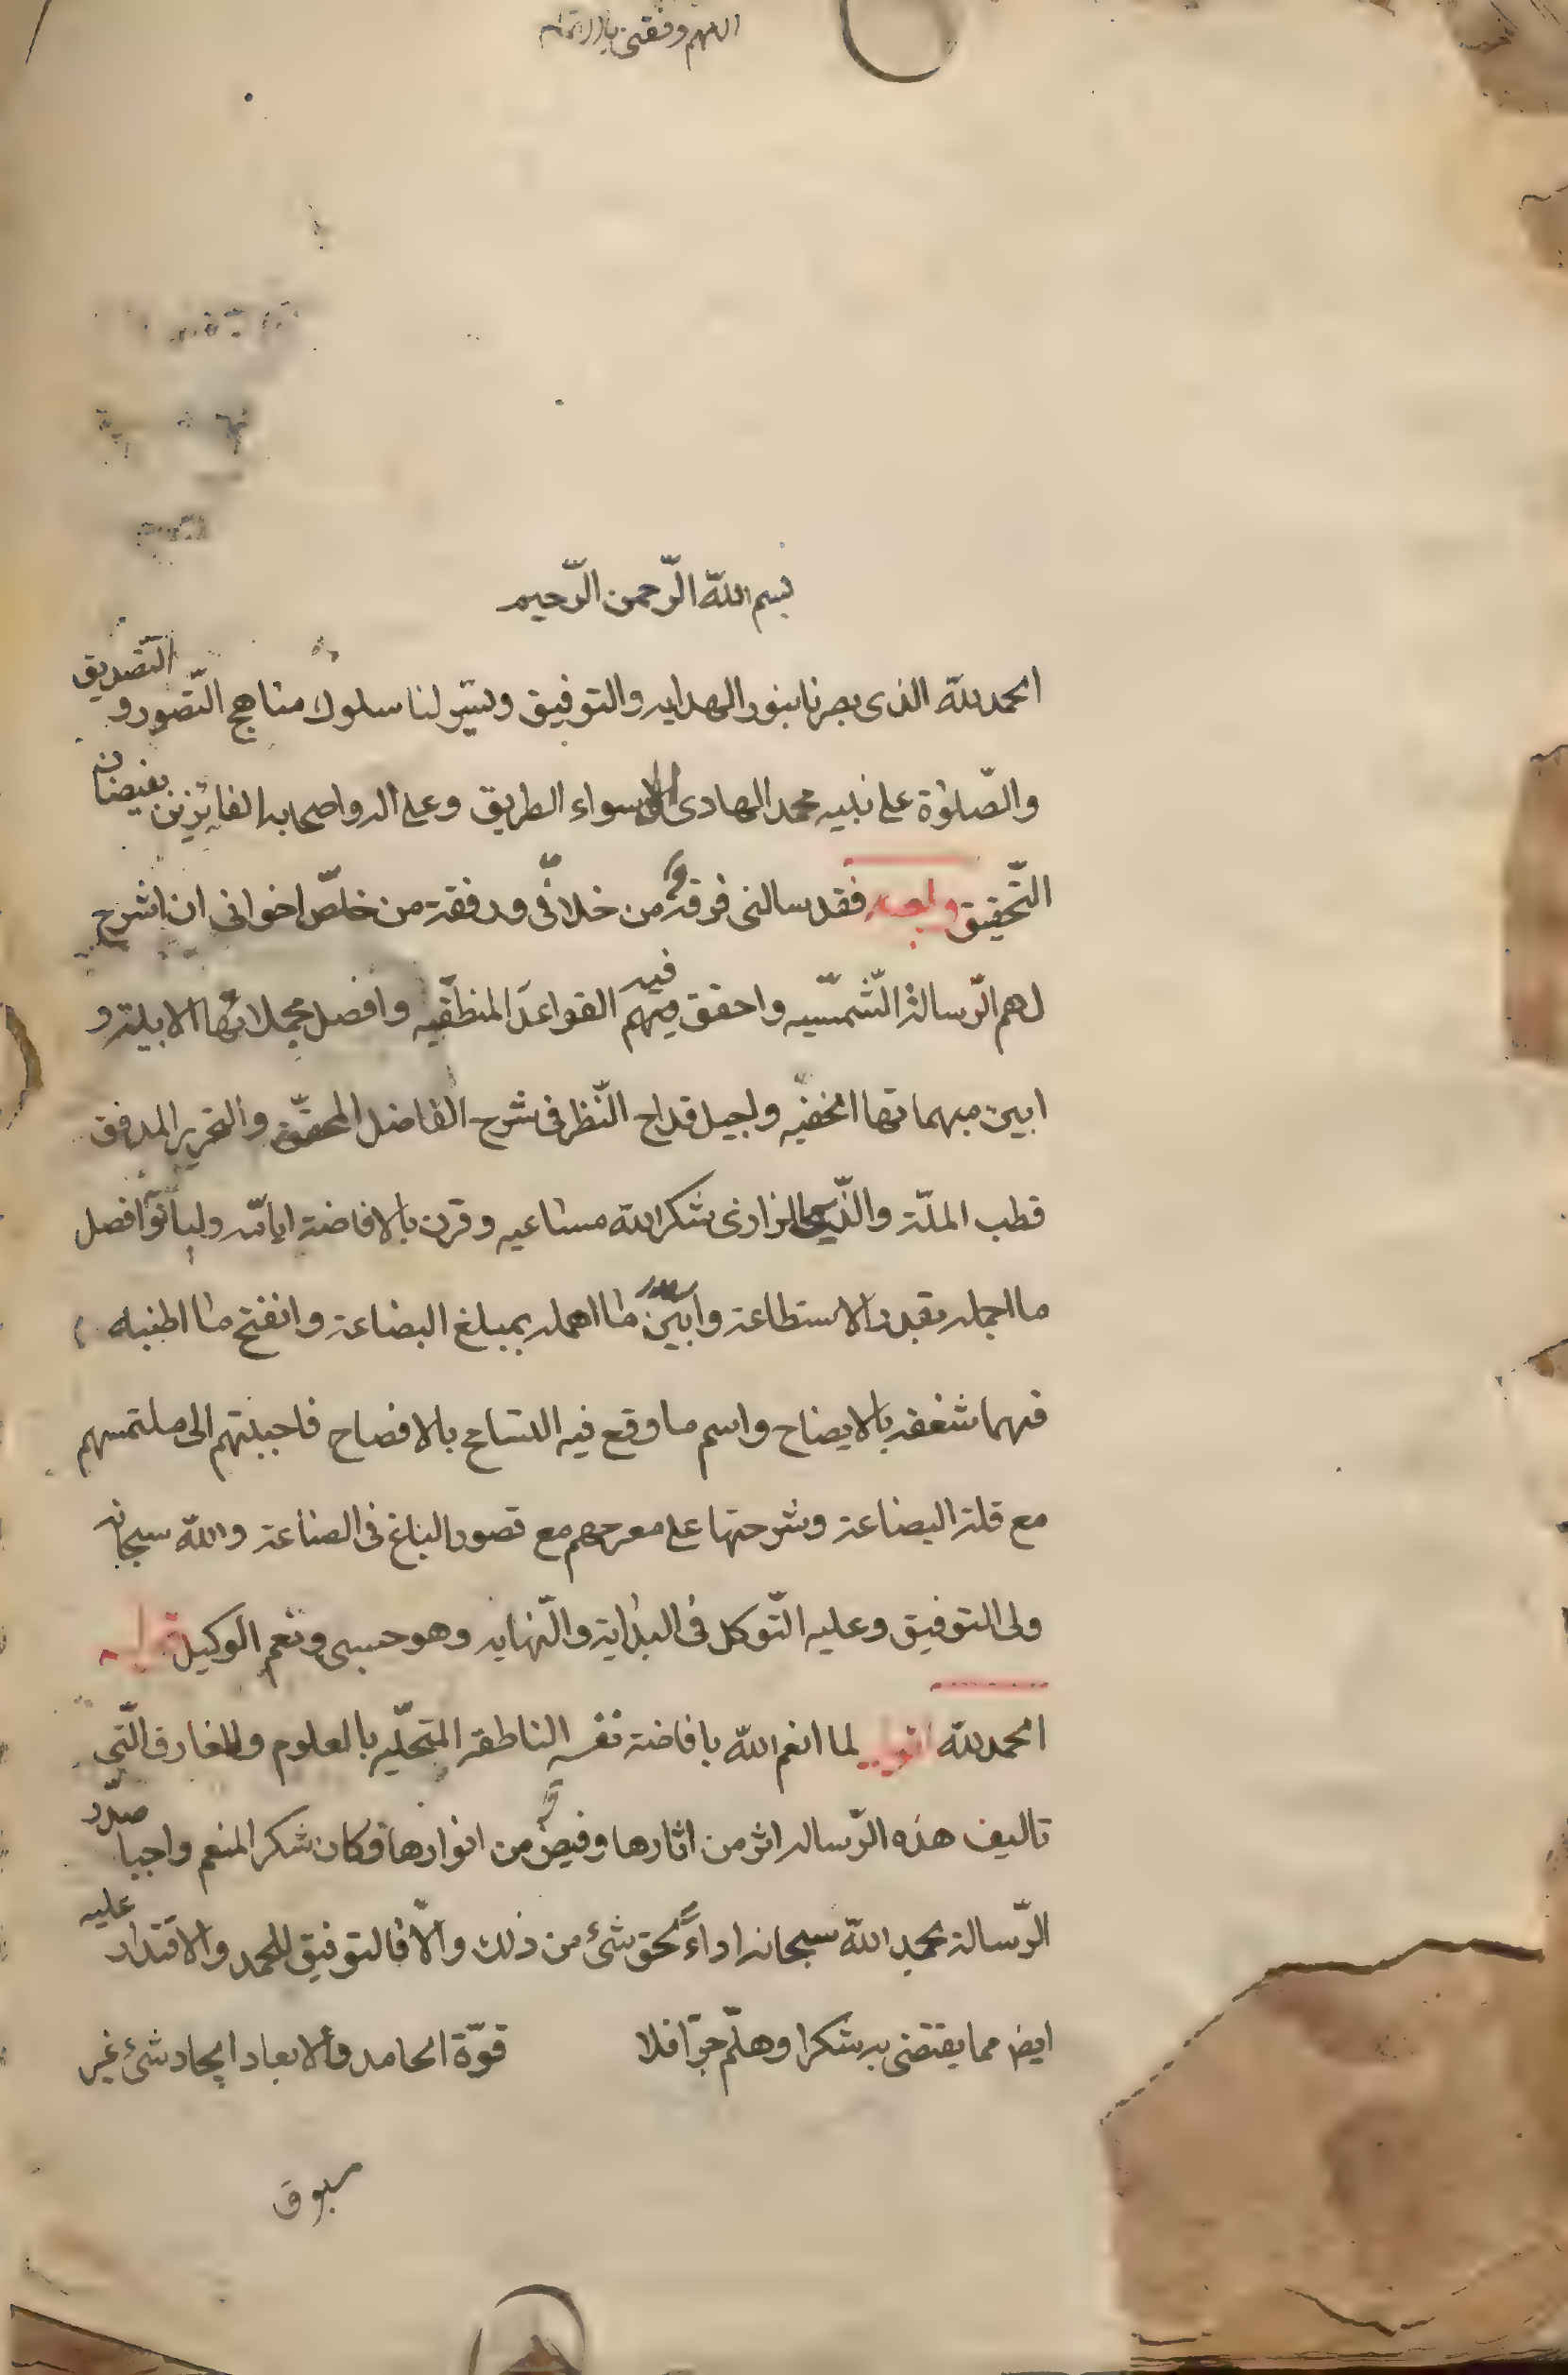 اللهم وفقنى بالاتمام
بسم الله الرّحمن الرّحيم
الحمد لله الذى بصرنا بنور الهدايه والتوفيق ويسّر لنا سلوك مناهج التّصور و التّصديق
والصّلوٰة على نبيه محمد الهادى الى سواء الطريق وعلى اله واصحابه الفايزين بفيضان
التّحقيق وبعد فقد سالنى فرقة من خلانى ورفقة من خلّص اخوانى ان اشرح
لهم الرّسالة الشّمسيه واحقق فيه القواعد المنطقيه وافصل مجملاتها الابيه و
ابين مبهماتها الخفيّه واجيل قداح النّظر فى شرح الفاضل المحقّق والنحرير المدقق
قطب الملّة والدّين الرازى شكر الله مساعيه وقرن بالافاضة ايامّه ولياليه افصل
ما اجمله بقدر الاستطاعة وابيّن ما اهمله بمبلغ البضاعة وانقح ما اطنبه
فيهما شغفه بالايضاح واسم ما وقع فيه التسامح بالافصاح فاجبتهم الى ملتمسهم
مع قلة البضاعة وشرحتها على مقترحهم مع قصور الباع فى الصناعة والله سبحانه
ولى التوفيق وعليه التّوكل فى البداية والنّهايه وهو حسبى ونعم الوكيل قوله
الحمد لله اقول لما انعم الله بافاضة نفسه الناطقة المتحلّيه بالعلوم والمعارف الّتى
تاليف هذه الرّساله اثر من اثارها وفيض من انوارها وكان شكر المنعم واجبا صدّر
الرّسالة بحمد الله سبحانه اداءً لحق شئ من ذلك والّا فالتوفيق للحمد والاقتدار عليه
ايض مما يقتضى به شكرا وهلّم جرّا فلا قوّة الحامد والابعاد ايجاد شئ غير
مسبوق